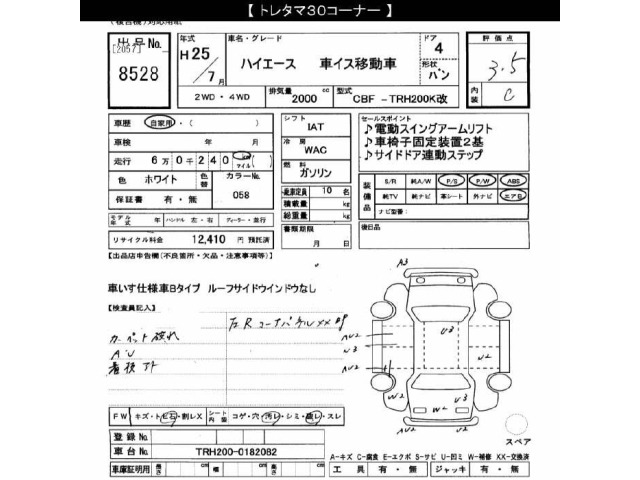 【 トレタマ30コーナー 】
出品No. [2057] 8528
年式 H25/7月
車名・グレード ハイエース 車イス移動車
ドア 4
形状 バン
評価点 3.5
内装 C
2WD・4WD
排気量 2000 cc
型式 CBF-TRH200K改
車歴 自家用・( )
車検 年 月
走行 6万0千240 km マイル ( )
色 ホワイト
色替
カラーNo. 058
保証書 有・無
モデル年式 年 ハンドル 左・右 ディーラー・並行
リサイクル料金 12,410 円 預託済
シフト IAT
冷房 WAC
燃料 ガソリン
乗車定員 10 名
積載量 kg
総重量 kg
書類期限 月 日
セールスポイント
♪電動スイングアームリフト
♪車椅子固定装置2基
♪サイドドア連動ステップ
装備品 S/R 純A/W P/S P/W ABS
純TV 純ナビ 革シート 外ナビ エアB
ナビ型番:
後日品
【出品店申告欄(不良箇所・欠品・注意事項等)】
車いす仕様車Bタイプ ルーフサイドウインドウなし
【検査員記入】
カーペット破れ
AU
A3
U3
AU2
U3
AU2
W2
W2
U3
W2
AU2
U2
FW キズ・ト ビ石・割レX
シート内装 コゲ・穴・汚レ・シミ・破レ・スレ
登録No.
車台No. TRH200-0182082
車庫証明用 長さ cm 幅 cm 高さ cm
スペア
A-キズ C-腐食 E-エクボ S-サビ U-凹ミ W-補修 XX-交換済
工具 有・無 ジャッキ 有・無